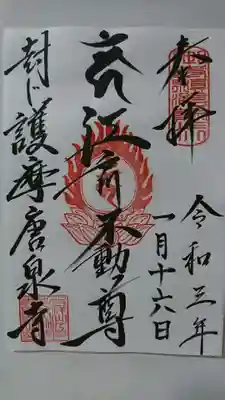 奉拝
令和三年
一月十六日
江不動尊
封じ護摩唐泉寺